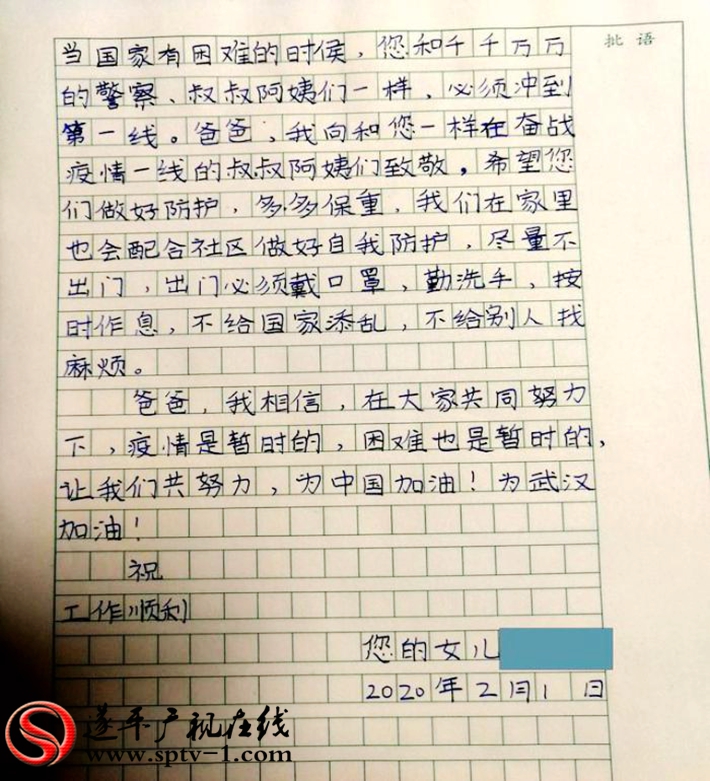 批语
当国家有困难的时侯，您和千千万万
的警察、叔叔阿姨们一样，必须冲到
第一线。爸爸，我向和您一样在奋战
疫情一线的叔叔阿姨们致敬，希望您
们做好防护，多多保重，我们在家里
也会配合社区做好自我防护，尽量不
出门，出门必须戴口罩，勤洗手，按
时作息，不给国家添乱，不给别人找
麻烦。
爸爸，我相信，在大家共同努力
下，疫情是暂时的，困难也是暂时的，
让我们共努力，为中国加油！为武汉
加油！
祝
工作顺利
您的女儿
2020年2月1日
遂平广视在线
www.sptv-1.com